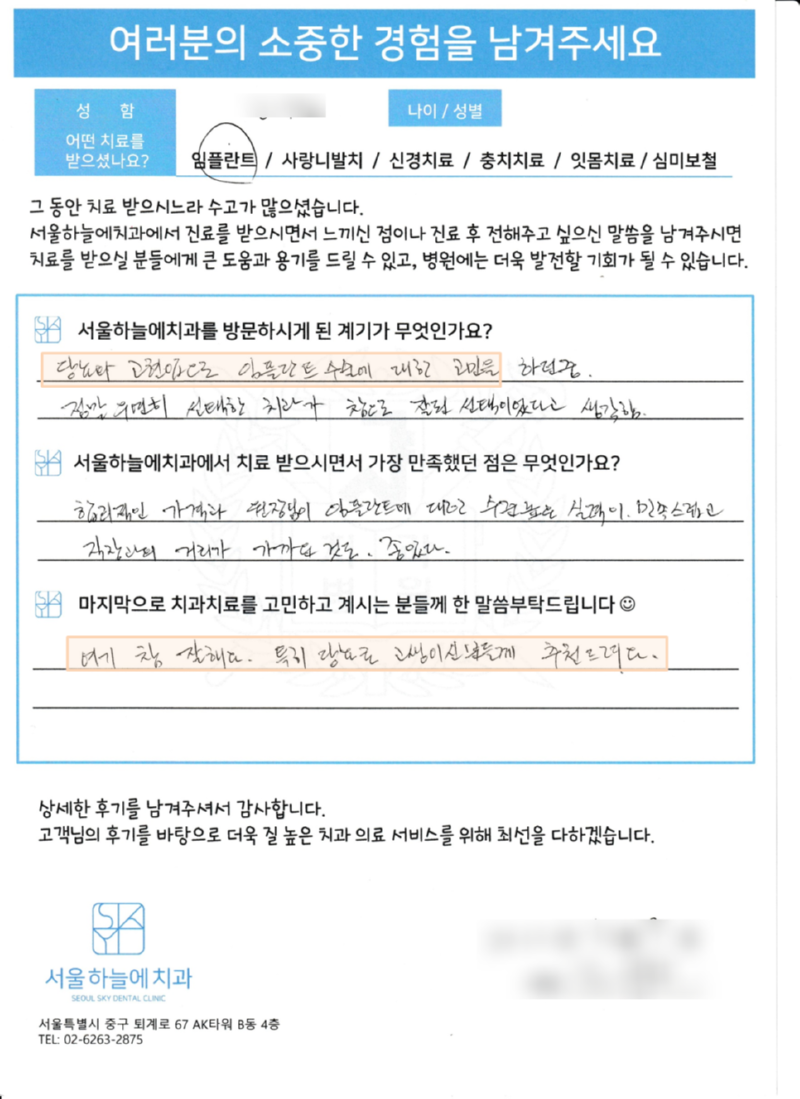 여러분의 소중한 경험을 남겨주세요
성 함
나이 / 성별
어떤 치료를
받으셨나요?
임플란트 / 사랑니발치 / 신경치료 / 충치치료 / 잇몸치료 / 심미보철
그 동안 치료 받으시느라 수고가 많으셨습니다.
서울하늘에치과에서 진료를 받으시면서 느끼신 점이나 진료 후 전해주고 싶으신 말씀을 남겨주시면
치료를 받으실 분들에게 큰 도움과 용기를 드릴 수 있고, 병원에는 더욱 발전할 기회가 될 수 있습니다.
서울하늘에치과를 방문하시게 된 계기가 무엇인가요?
당뇨와 고혈압으로 임플란트 수술에 대한 고민을 하던중.
우연히 선택한 치과가 참으로 잘된 선택이었다고 생각함.
서울하늘에치과에서 치료 받으시면서 가장 만족했던 점은 무엇인가요?
합리적인 가격과 원장님이 임플란트에 대한 수준높은 실력이. 만족스럽고
직장과의 거리가 가까운 것도. 좋았다.
마지막으로 치과치료를 고민하고 계시는 분들께 한 말씀부탁드립니다☺
여기 참 잘해다. 특히 당뇨로 고생이신분들께 추천드려다.
상세한 후기를 남겨주셔서 감사합니다.
고객님의 후기를 바탕으로 더욱 질 높은 치과 의료 서비스를 위해 최선을 다하겠습니다.
SKY
서울하늘에치과
SEOUL SKY DENTAL CLINIC
서울특별시 중구 퇴계로 67 AK타워 B동 4층
TEL: 02-6263-2875